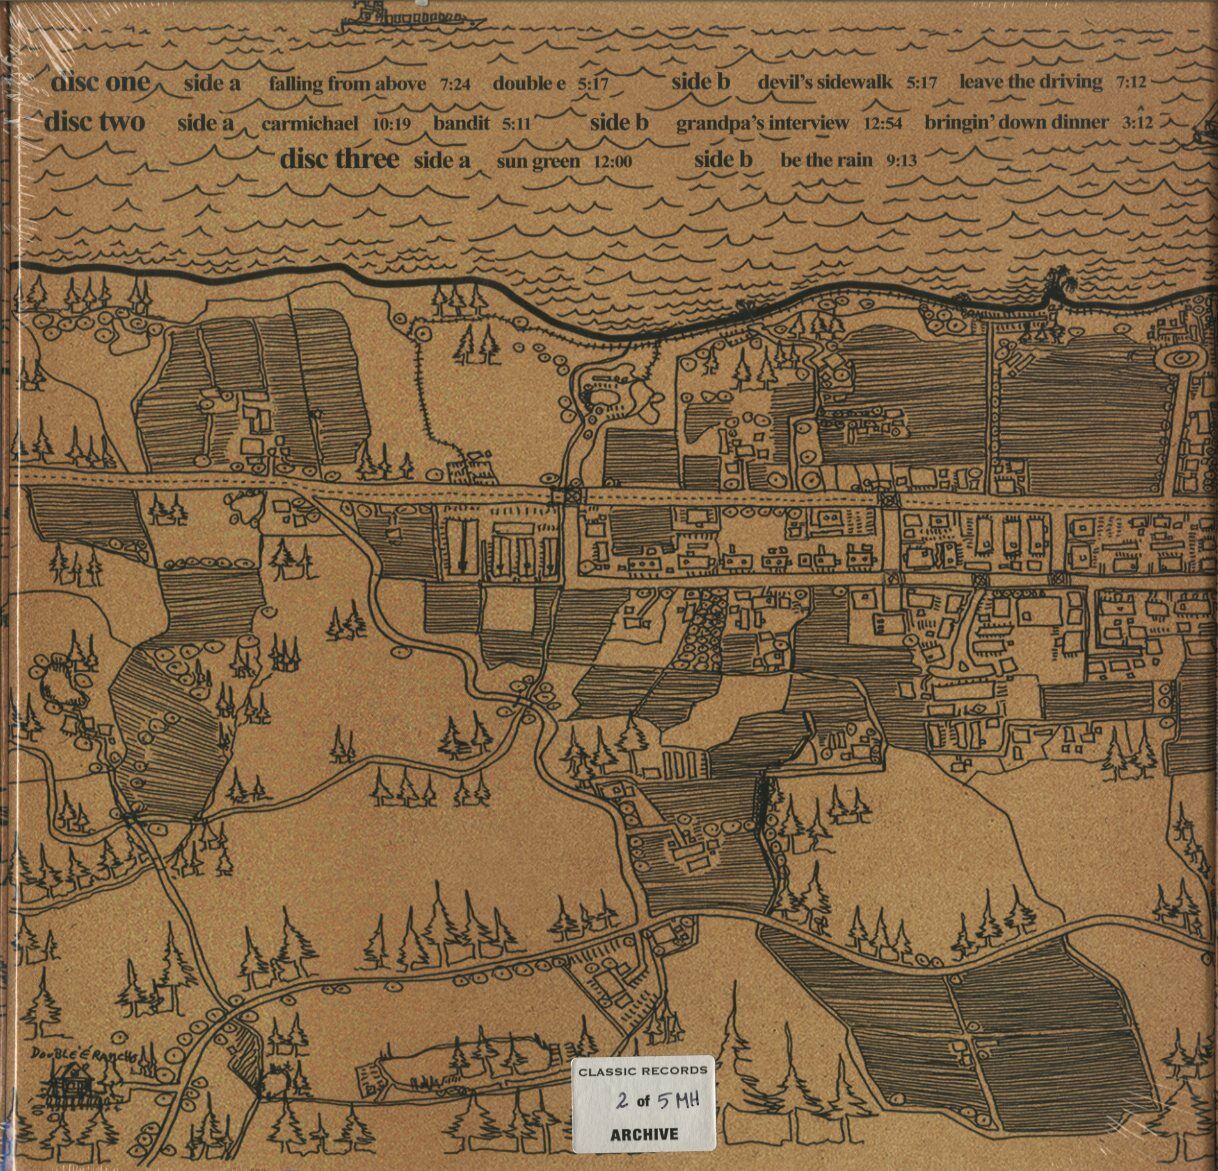 disc one side a falling from above 7:24 double e 5:17 side b devil's sidewalk 5:17 leave the driving 7:12
disc two side a carmichael 10:19 bandit 5:11 side b grandpa's interview 12:54 bringin' down dinner 3:12
disc three side a sun green 12:00 side b be the rain 9:13
DOUBLE E RANCH
CLASSIC RECORDS
2 of 5 MH
ARCHIVE